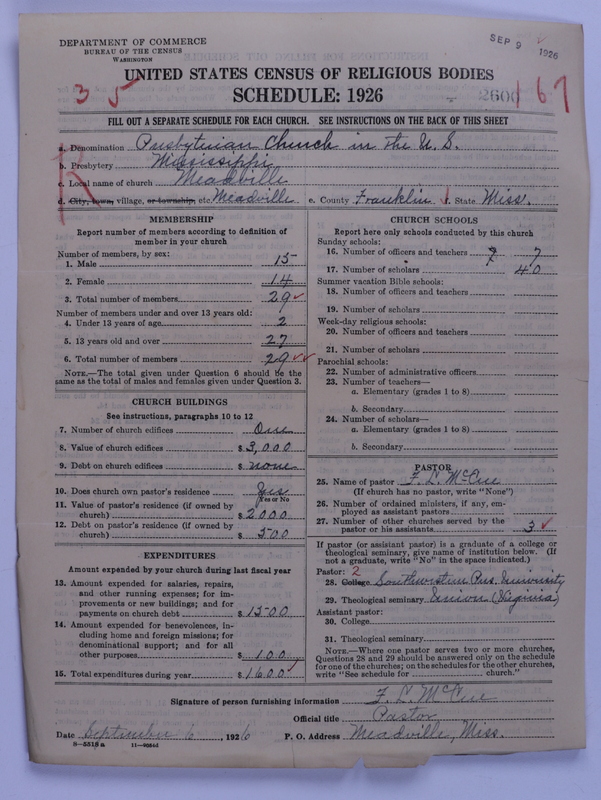 DEPARTMENT OF COMMERCE
BUREAU OF THE CENSUS
WASHINGTON
SEP 9 1926
UNITED STATES CENSUS OF RELIGIOUS BODIES
SCHEDULE: 1926
3 5
2600
167
FILL OUT A SEPARATE SCHEDULE FOR EACH CHURCH. SEE INSTRUCTIONS ON THE BACK OF THIS SHEET
a. Denomination Presbyterian Church in the U. S.
b. Presbytery Mississippi
c. Local name of church Meadville
d. City, town, village, or township, etc. Meadville e. County Franklin f. State Miss.
MEMBERSHIP
Report number of members according to definition of
member in your church
Number of members, by sex:
1. Male 15
2. Female 14
3. Total number of members 29
Number of members under and over 13 years old:
4. Under 13 years of age 2
5. 13 years old and over 27
6. Total number of members 29
NOTE.—The total given under Question 6 should be the
same as the total of males and females given under Question 3.
CHURCH BUILDINGS
See instructions, paragraphs 10 to 12
7. Number of church edifices One
8. Value of church edifices $ 3,000
9. Debt on church edifices $ none
10. Does church own pastor's residence Yes
Yes or No
11. Value of pastor's residence (if owned by
church) $ 2,000
12. Debt on pastor's residence (if owned by
church) $ 500
EXPENDITURES
Amount expended by your church during last fiscal year
13. Amount expended for salaries, repairs,
and other running expenses; for im-
provements or new buildings; and for
payments on church debt $ 1500
14. Amount expended for benevolences, in-
cluding home and foreign missions; for
denominational support; and for all
other purposes $ 100
15. Total expenditures during year $ 1600
CHURCH SCHOOLS
Report here only schools conducted by this church
Sunday schools:
16. Number of officers and teachers 7 7
17. Number of scholars 40
Summer vacation Bible schools:
18. Number of officers and teachers
19. Number of scholars
Week-day religious schools:
20. Number of officers and teachers
21. Number of scholars
Parochial schools:
22. Number of administrative officers
23. Number of teachers—
a. Elementary (grades 1 to 8)
b. Secondary
24. Number of scholars—
a. Elementary (grades 1 to 8)
b. Secondary
PASTOR
25. Name of pastor F. L. McCue
(If church has no pastor, write "None")
26. Number of ordained ministers, if any, em-
ployed as assistant pastors
27. Number of other churches served by the
pastor or his assistants 3
If pastor (or assistant pastor) is a graduate of a college or
theological seminary, give name of institution below. (If
not a graduate, write "No" in the space indicated.)
Pastor: 2
28. College Southwestern Pres. University
29. Theological seminary Union (Virginia)
Assistant pastor:
30. College
31. Theological seminary
NOTE.—Where one pastor serves two or more churches,
Questions 28 and 29 should be answered only on the schedule
for one of the churches; on the schedules for the other churches,
write "See schedule for church."
Signature of person furnishing information F. L. McCue
Official title Pastor
Date September 6, 1926 P. O. Address Meadville, Miss.
8—5518 a